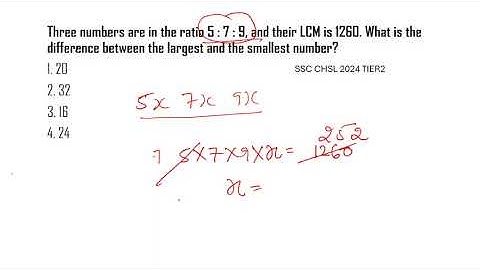 Three numbers are in the ratio 5 : 7 : 9, and their LCM is 1260. What is the
difference between the largest and the smallest number?
1. 20
SSC CHSL 2024 TIER2
2. 32
3. 16
4. 24
5x 7x 9x
252
5×7×9×x = 1260
x =